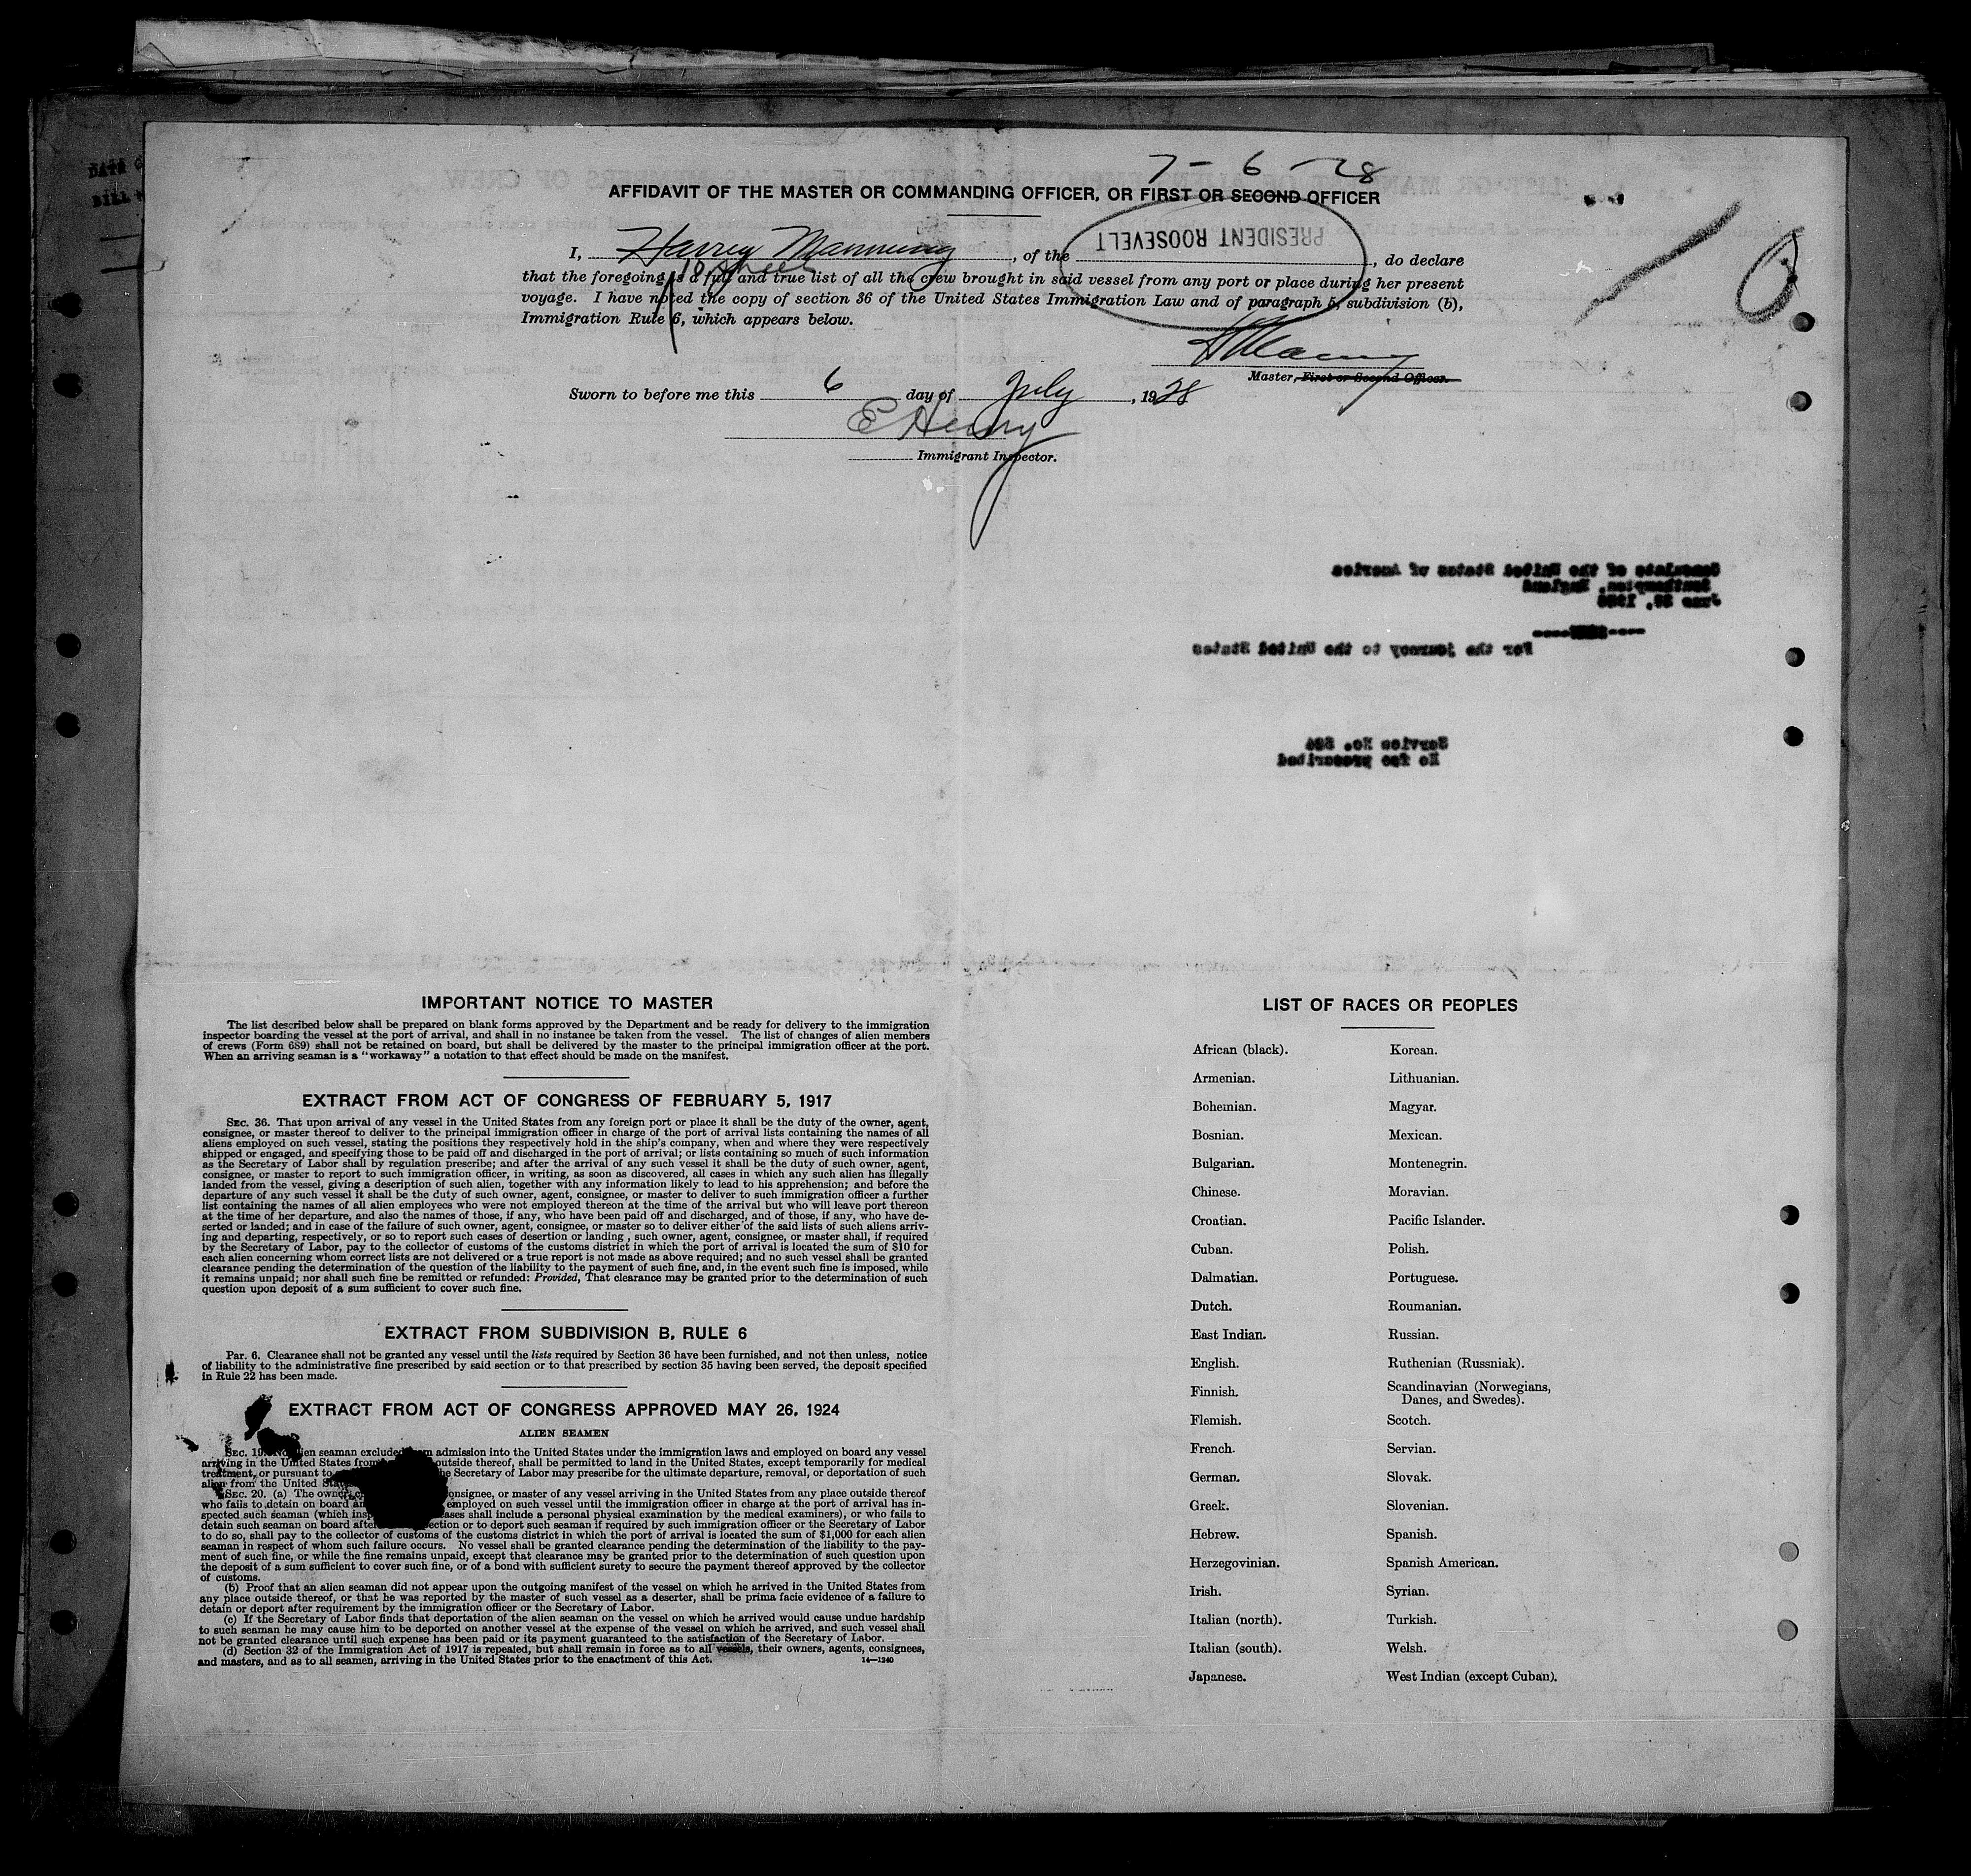 DATE
BILL
7-6-28
AFFIDAVIT OF THE MASTER OR COMMANDING OFFICER, OR FIRST OR SECOND OFFICER
I, Harry Manning, of the PRESIDENT ROOSEVELT, do declare
10 sheets
that the foregoing is a full and true list of all the crew brought in said vessel from any port or place during her present
voyage. I have noted the copy of section 36 of the United States Immigration Law and of paragraph 5, subdivision (b),
Immigration Rule 6, which appears below.
10
H Manning
Master, First or Second Officer.
Sworn to before me this 6 day of July, 1928
E Henry
Immigrant Inspector.
Consulate of the United States of America
Southampton, England
June 1928
For the journey to the United States
Service No.
No fee prescribed
IMPORTANT NOTICE TO MASTER
The list described below shall be prepared on blank forms approved by the Department and be ready for delivery to the immigration
inspector boarding the vessel at the port of arrival, and shall in no instance be taken from the vessel. The list of changes of alien members
of crews (Form 689) shall not be retained on board, but shall be delivered by the master to the principal immigration officer at the port.
When an arriving seaman is a "workaway" a notation to that effect should be made on the manifest.
EXTRACT FROM ACT OF CONGRESS OF FEBRUARY 5, 1917
SEC. 36. That upon arrival of any vessel in the United States from any foreign port or place it shall be the duty of the owner, agent,
consignee, or master thereof to deliver to the principal immigration officer in charge of the port of arrival lists containing the names of all
aliens employed on such vessel, stating the positions they respectively hold in the ship's company, when and where they were respectively
shipped or engaged, and specifying those to be paid off and discharged in the port of arrival; or lists containing so much of such information
as the Secretary of Labor shall by regulation prescribe; and after the arrival of any such vessel it shall be the duty of such owner, agent,
consignee, or master to report to such immigration officer, in writing, as soon as discovered, all cases in which any such alien has illegally
landed from the vessel, giving a description of such alien, together with any information likely to lead to his apprehension; and before the
departure of any such vessel it shall be the duty of such owner, agent, consignee, or master to deliver to such immigration officer a further
list containing the names of all alien employees who were not employed thereon at the time of the arrival but who will leave port thereon
at the time of her departure, and also the names of those, if any, who have been paid off and discharged, and of those, if any, who have de-
serted or landed; and in case of the failure of such owner, agent, consignee, or master so to deliver either of the said lists of such aliens arriv-
ing and departing, respectively, or so to report such cases of desertion or landing, such owner, agent, consignee, or master shall, if required
by the Secretary of Labor, pay to the collector of customs of the customs district in which the port of arrival is located the sum of $10 for
each alien concerning whom correct lists are not delivered or a true report is not made as above required; and no such vessel shall be granted
clearance pending the determination of the question of the liability to the payment of such fine, and, in the event such fine is imposed, while
it remains unpaid; nor shall such fine be remitted or refunded: Provided, That clearance may be granted prior to the determination of such
question upon deposit of a sum sufficient to cover such fine.
EXTRACT FROM SUBDIVISION B, RULE 6
Par. 6. Clearance shall not be granted any vessel until the lists required by Section 36 have been furnished, and not then unless, notice
of liability to the administrative fine prescribed by said section or to that prescribed by section 35 having been served, the deposit specified
in Rule 22 has been made.
EXTRACT FROM ACT OF CONGRESS APPROVED MAY 26, 1924
ALIEN SEAMEN
SEC. 19. No alien seaman excluded from admission into the United States under the immigration laws and employed on board any vessel
arriving in the United States from outside thereof, shall be permitted to land in the United States, except temporarily for medical
treatment, or pursuant to the Secretary of Labor may prescribe for the ultimate departure, removal, or deportation of such
alien from the United States
SEC. 20. (a) The owner, consignee, or master of any vessel arriving in the United States from any place outside thereof
who fails to detain on board employed on such vessel until the immigration officer in charge at the port of arrival has in-
spected such seaman (which cases shall include a personal physical examination by the medical examiners), or who fails to
detain such seaman on board after inspection or to deport such seaman if required by such immigration officer or the Secretary of Labor
to do so, shall pay to the collector of customs of the customs district in which the port of arrival is located the sum of $1,000 for each alien
seaman in respect of whom such failure occurs. No vessel shall be granted clearance pending the determination of the liability to the pay-
ment of such fine, or while the fine remains unpaid, except that clearance may be granted prior to the determination of such question upon
the deposit of a sum sufficient to cover such fine, or of a bond with sufficient surety to secure the payment thereof approved by the collector
of customs.
(b) Proof that an alien seaman did not appear upon the outgoing manifest of the vessel on which he arrived in the United States from
any place outside thereof, or that he was reported by the master of such vessel as a deserter, shall be prima facie evidence of a failure to
detain or deport after requirement by the immigration officer or the Secretary of Labor.
(c) If the Secretary of Labor finds that deportation of the alien seaman on the vessel on which he arrived would cause undue hardship
to such seaman he may cause him to be deported on another vessel at the expense of the vessel on which he arrived, and such vessel shall
not be granted clearance until such expense has been paid or its payment guaranteed to the satisfaction of the Secretary of Labor.
(d) Section 32 of the Immigration Act of 1917 is repealed, but shall remain in force as to all vessels, their owners, agents, consignees,
and masters, and as to all seamen, arriving in the United States prior to the enactment of this Act.
14—1240
LIST OF RACES OR PEOPLES
African (black).
Armenian.
Bohemian.
Bosnian.
Bulgarian.
Chinese.
Croatian.
Cuban.
Dalmatian.
Dutch.
East Indian.
English.
Finnish.
Flemish.
French.
German.
Greek.
Hebrew.
Herzegovinian.
Irish.
Italian (north).
Italian (south).
Japanese.
Korean.
Lithuanian.
Magyar.
Mexican.
Montenegrin.
Moravian.
Pacific Islander.
Polish.
Portuguese.
Roumanian.
Russian.
Ruthenian (Russniak).
Scandinavian (Norwegians,
Danes, and Swedes).
Scotch.
Servian.
Slovak.
Slovenian.
Spanish.
Spanish American.
Syrian.
Turkish.
Welsh.
West Indian (except Cuban).